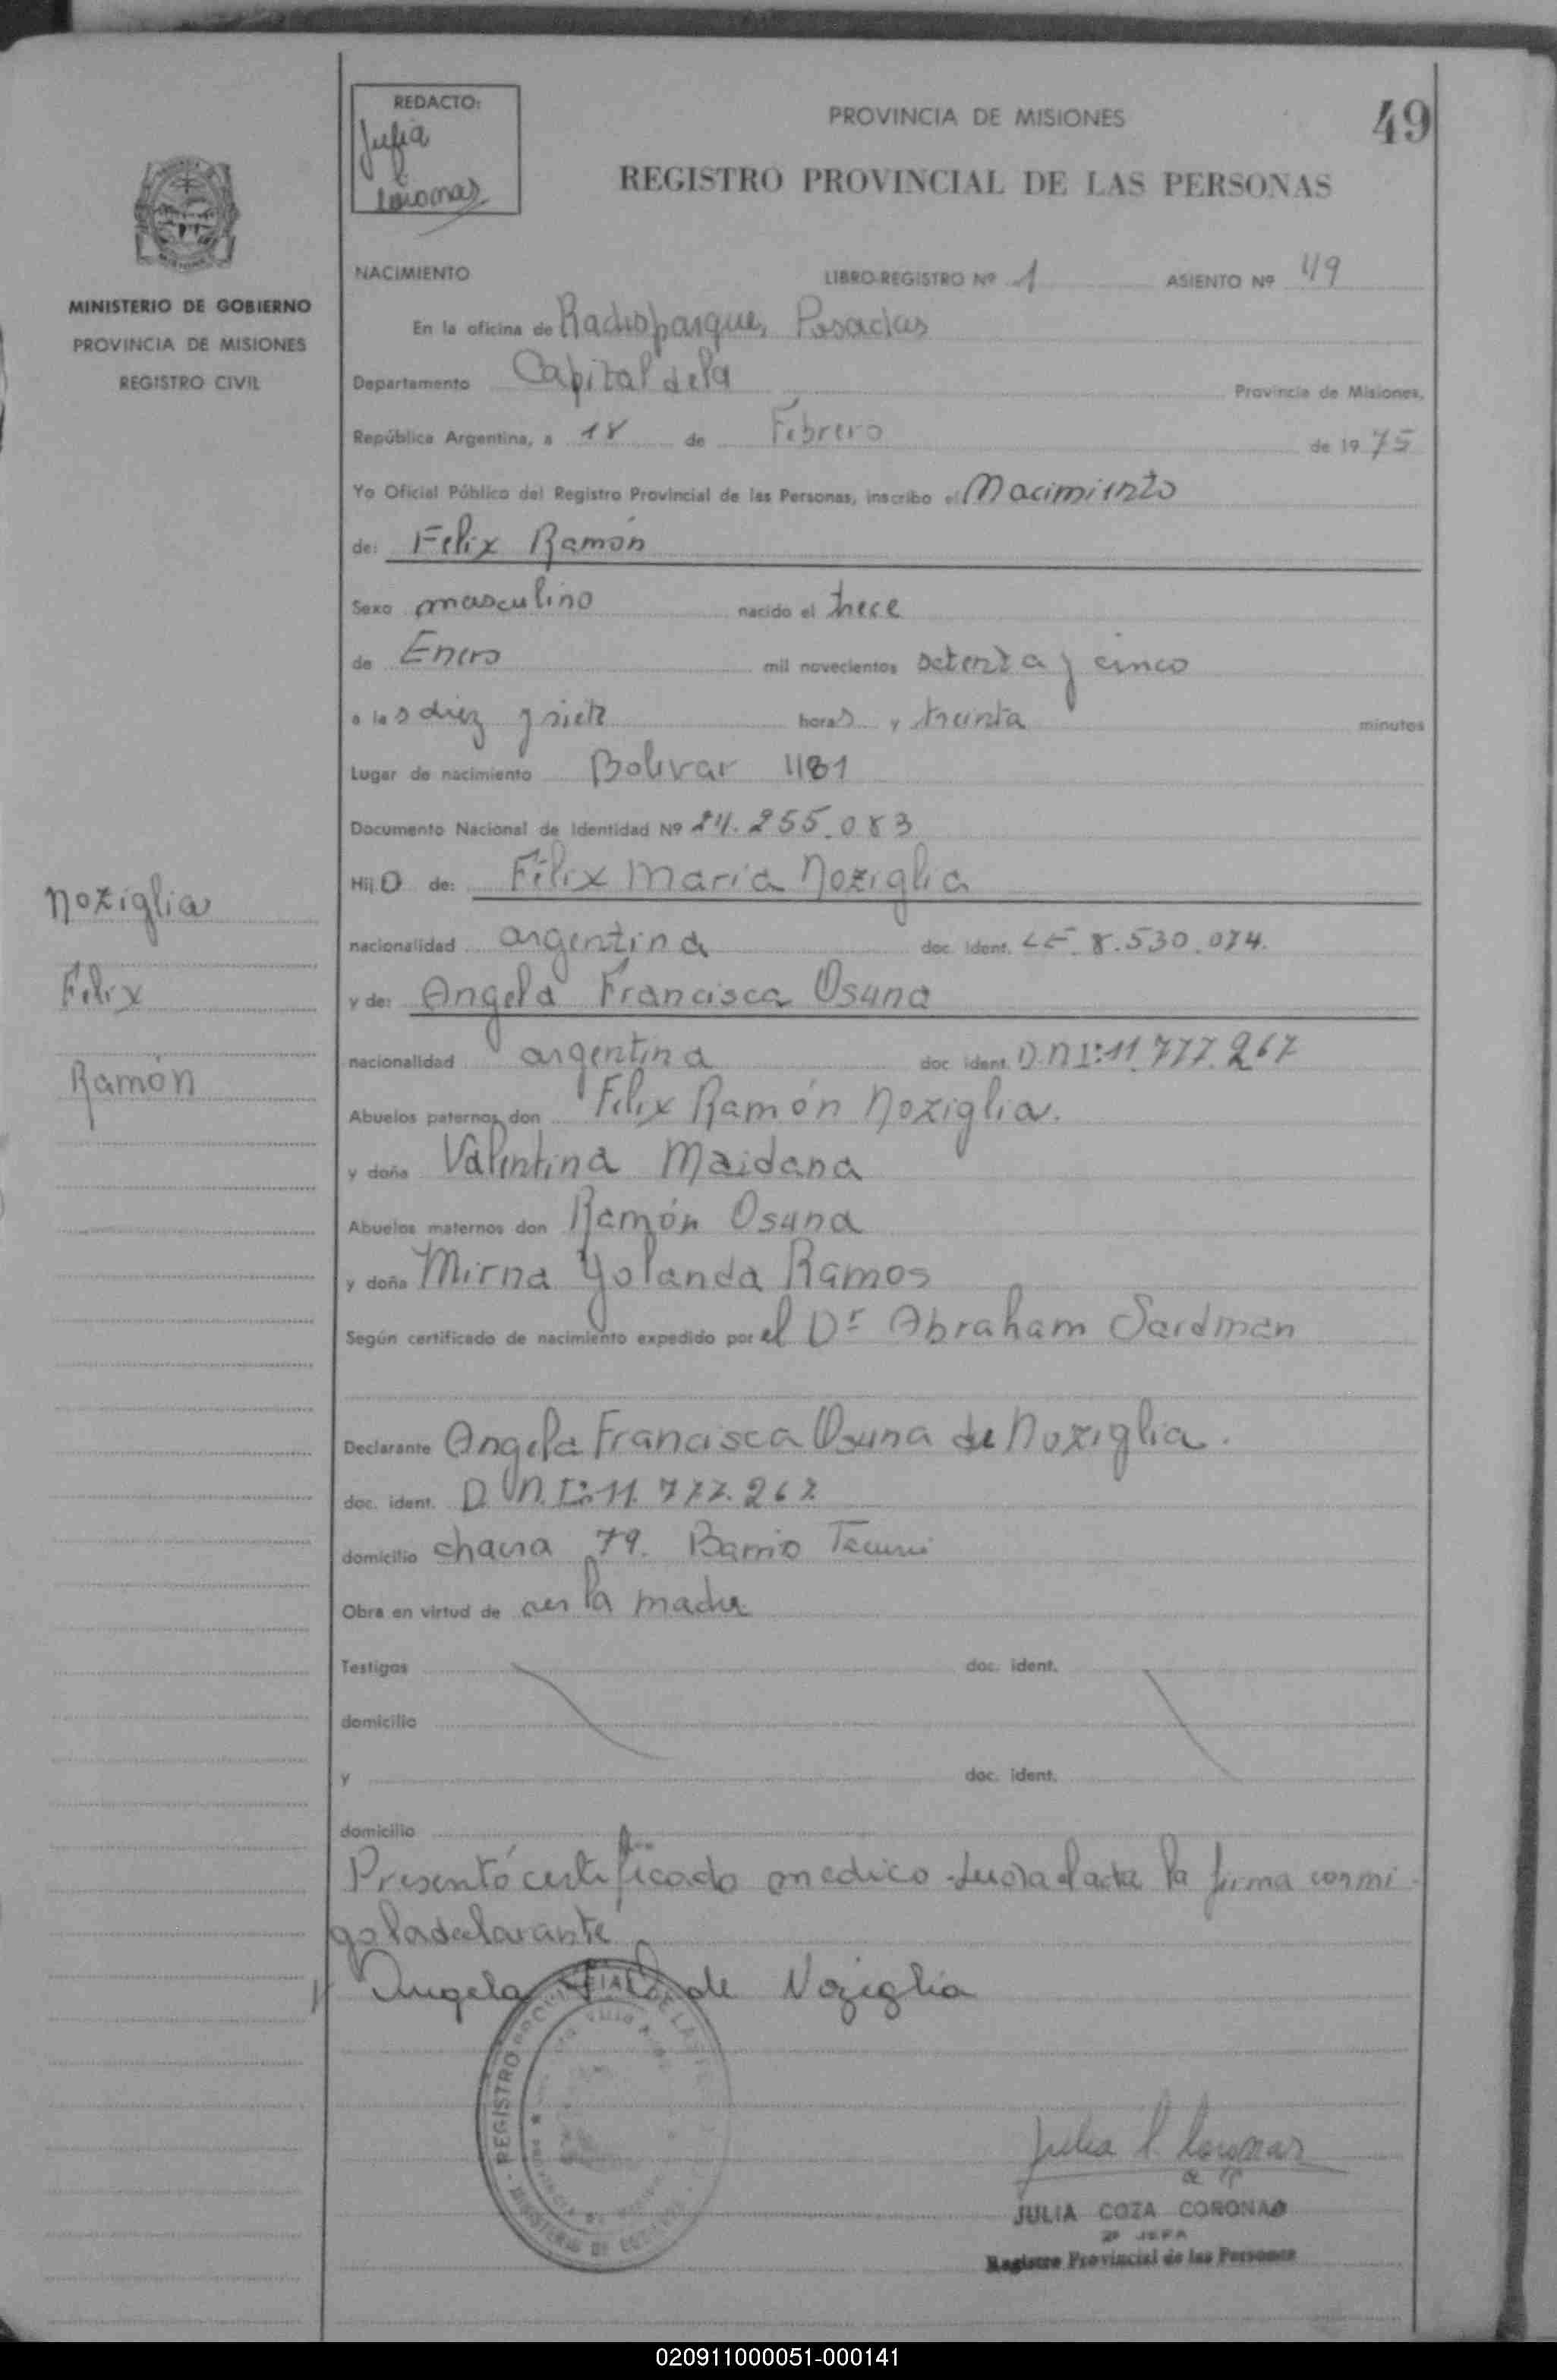 REDACTO:
Julia
Coronas
PROVINCIA DE MISIONES
49
REGISTRO PROVINCIAL DE LAS PERSONAS
MINISTERIO DE GOBIERNO
PROVINCIA DE MISIONES
REGISTRO CIVIL
NACIMIENTO LIBRO-REGISTRO Nº 1 ASIENTO Nº 49
En la oficina de Radioparque, Posadas
Departamento Capital de la Provincia de Misiones,
República Argentina, a 18 de Febrero de 1975
Yo Oficial Público del Registro Provincial de las Personas, inscribo el Nacimiento
de: Felix Ramón
Sexo masculino nacido el trece
de Enero mil novecientos setenta y cinco
a las diez y siete horas y treinta minutos
Lugar de nacimiento Bolivar 1181
Documento Nacional de Identidad Nº 24.255.083
Hijo de: Félix María Noziglia
nacionalidad argentina doc. ident. LE. 8.530.074.
y de: Angela Francisca Osuna
nacionalidad argentina doc. ident. D.N.I: 11.777.267
Abuelos paternos don Felix Ramón Noziglia.
y doña Valentina Maidana
Abuelos maternos don Ramón Osuna
y doña Mirna Yolanda Ramos
Según certificado de nacimiento expedido por el Dr Abraham Sardman
Noziglia
Felix
Ramón
Declarante Angela Francisca Osuna de Noziglia.
doc. ident. D.N.I: 11.777.267
domicilio chacra 79. Barrio
Obra en virtud de ser la madre
Testigos doc. ident.
domicilio
y doc. ident.
domicilio
Presentó certificado medico leida el acta la firma conmi-
go la declarante
Angela de Noziglia
REGISTRO PROVINCIAL DE LAS
MINISTERIO DE
JULIA COZA CORONAO
2º JEFA
Registro Provincial de las Personas
020911000051-000141